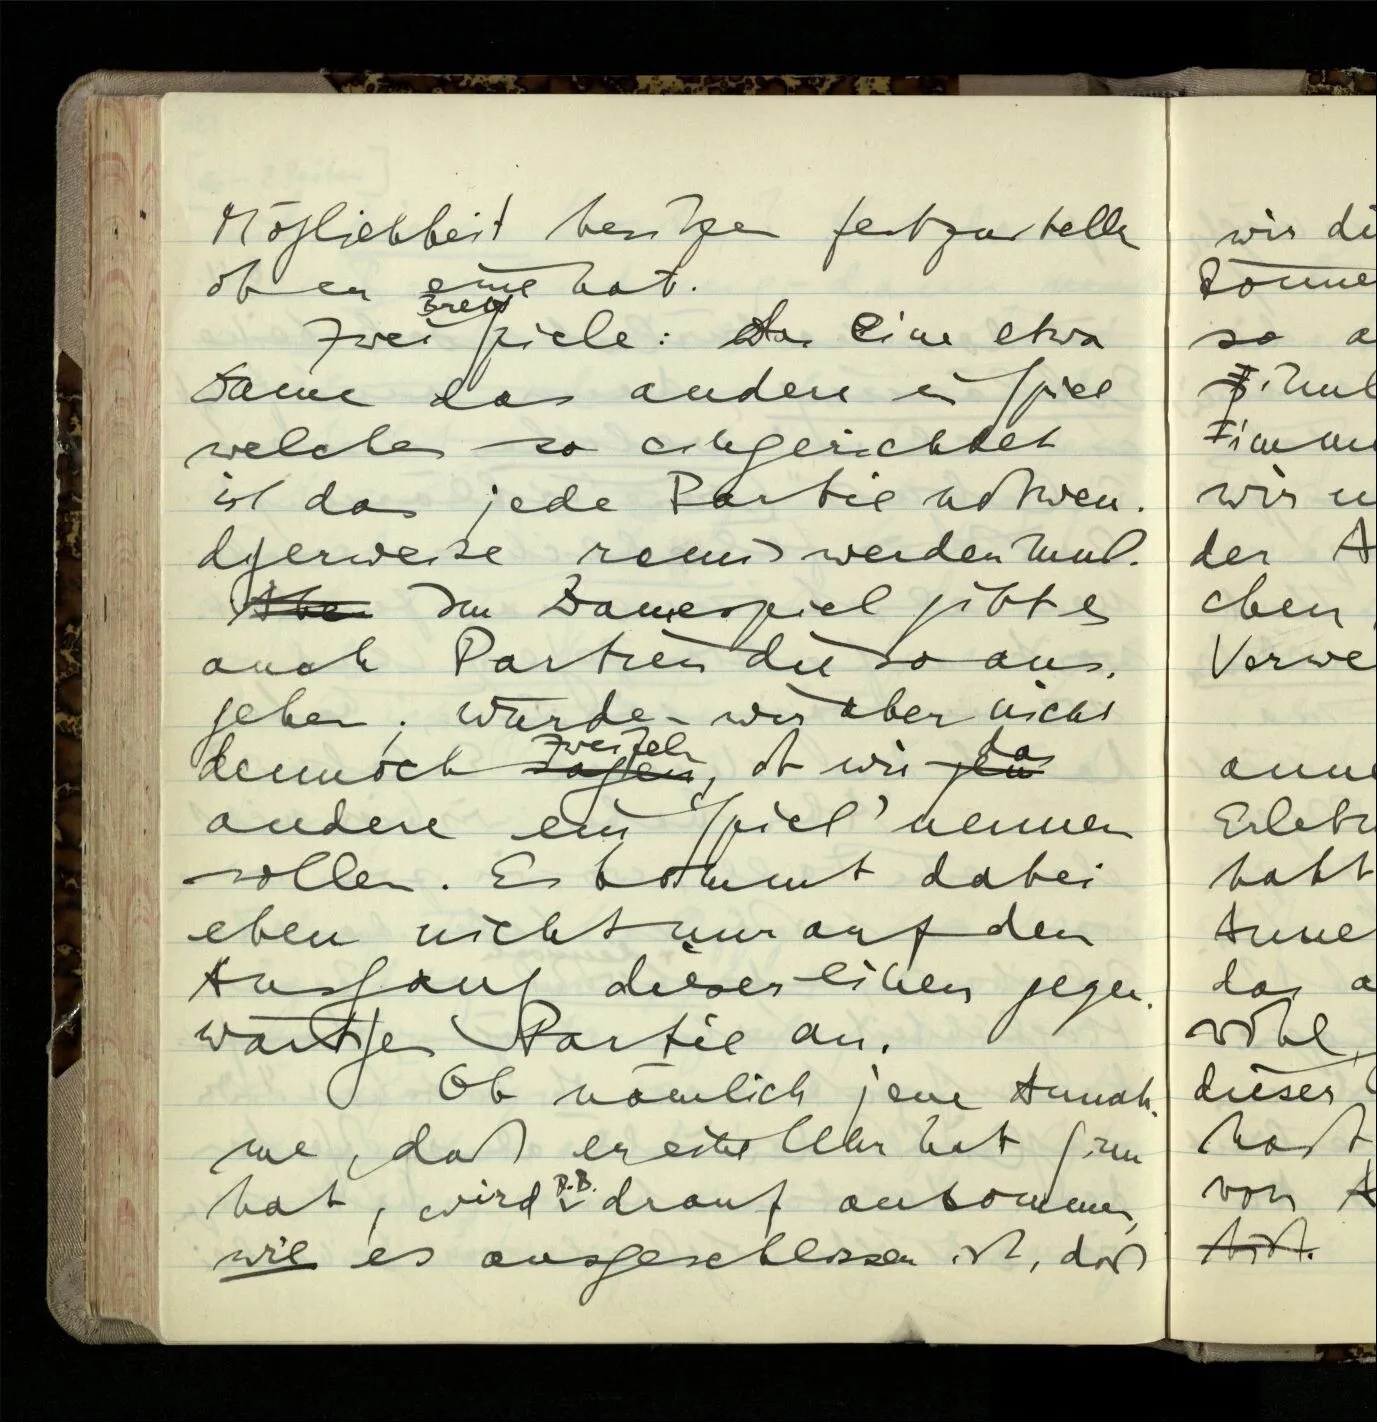 Möglichkeit besitzen festzustellen
ob er eine hat.
Brett
Zwei Spiele: Das Eine etwa
Dame das andere ein Spiel
welches so eingerichtet
ist das jede Partie notwen-
digerweise remis werden muß.
Aber Im Damespiel gibt es
auch Partien die so aus-
gehen; würden wir aber nicht
zweifeln das
dennoch sagen, ob wir jenes
andere ein ‚Spiel' nennen
sollen. Es kommt dabei
eben nicht nur auf den
Ausgang dieser einen gegen-
wärtigen Partie an.
Ob nämlich jene Annah-
me, daß er eine Uhr hat Sinn
z.B.
hat, wird drauf ankommen,
wie es ausgeschlossen ist, daß
wir di
könne
so a
Zimm
wir u
der A
chen
Verwe
anne
Erleb
habt
Anne
das a
wohl,
dieser
hast
von A